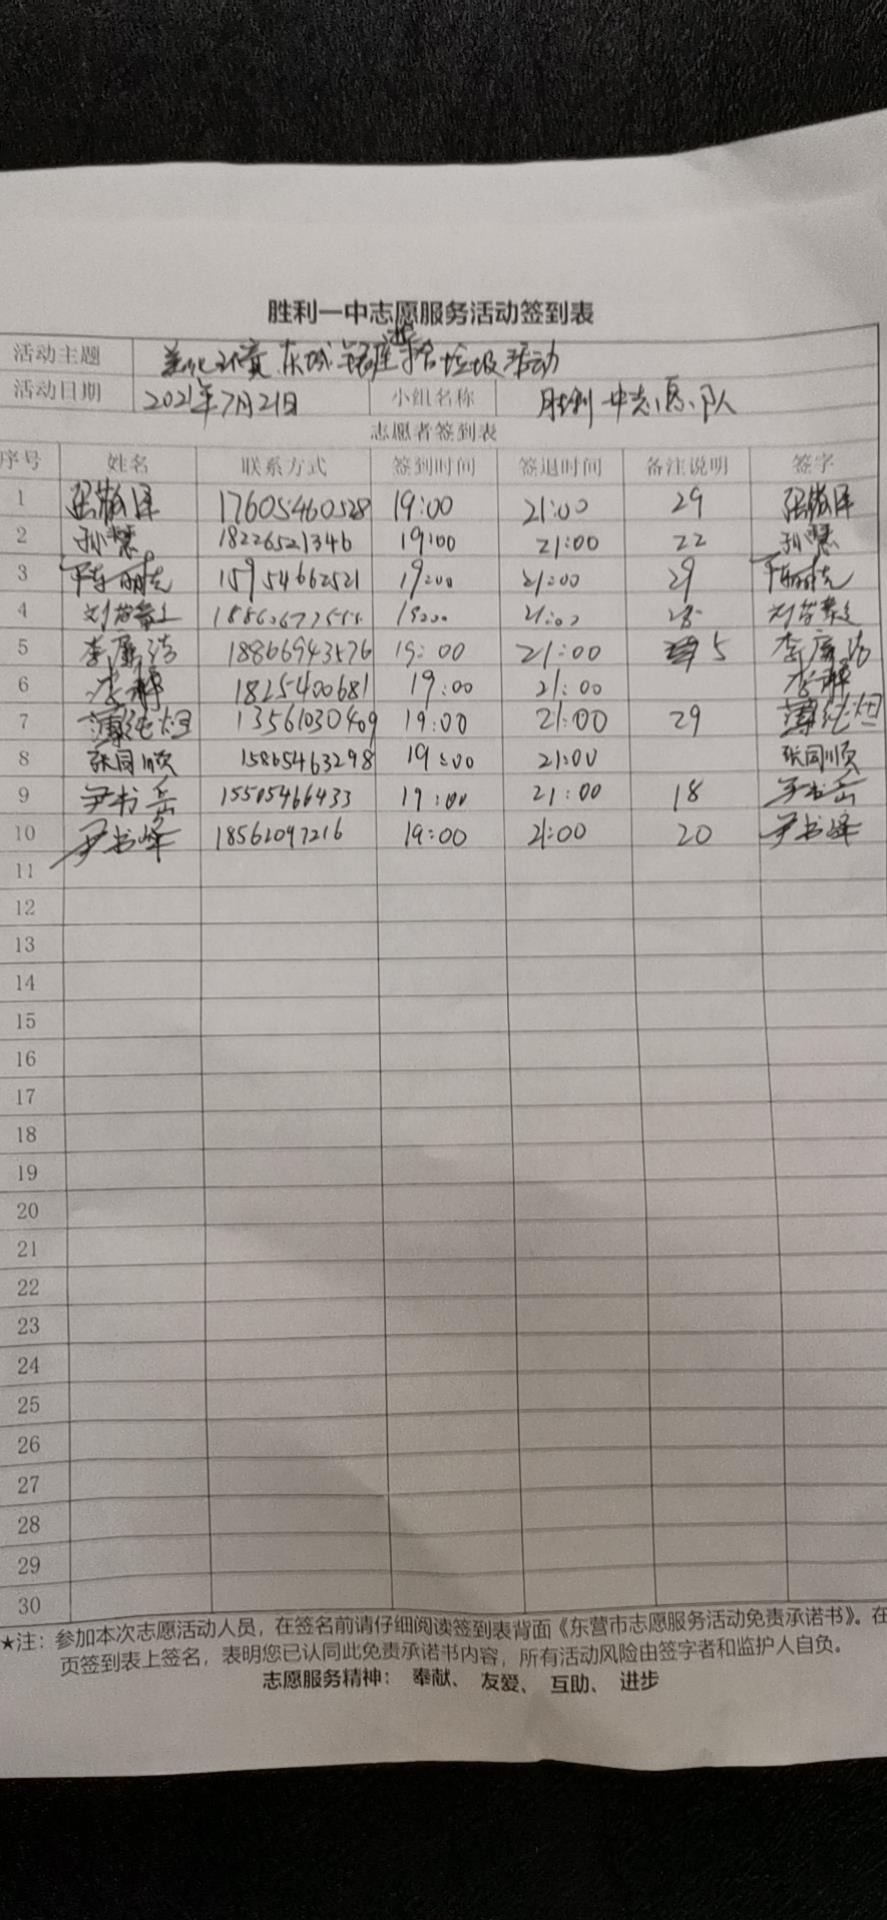 胜利一中志愿服务活动签到表
活动主题 美化环境 东城 捡拾垃圾活动
活动日期 2021年7月21日 小组名称 胜利一中志愿队
志愿者签到表
序号 姓名 联系方式 签到时间 签退时间 备注说明 签字
1 17605460528 19:00 21:00 29
2 孙慧 18226521346 19:00 21:00 22 孙慧
3 15954662521 19:00 21:00 29
4 19:00 21:00 28
5 李 18866943576 19:00 21:00 5 李
6 1825400681 19:00 21:00
7 13561030409 19:00 21:00 29
8 张同顺 15865463298 19:00 21:00 张同顺
9 尹书岳 15505466433 19:00 21:00 18 尹书岳
10 尹书峰 18561097216 19:00 21:00 20 尹书峰
11
12
13
14
15
16
17
18
19
20
21
22
23
24
25
26
27
28
29
30
★注：参加本次志愿活动人员，在签名前请仔细阅读签到表背面《东营市志愿服务活动免责承诺书》。在
页签到表上签名，表明您已认同此免责承诺书内容，所有活动风险由签字者和监护人自负。
志愿服务精神： 奉献、 友爱、 互助、 进步